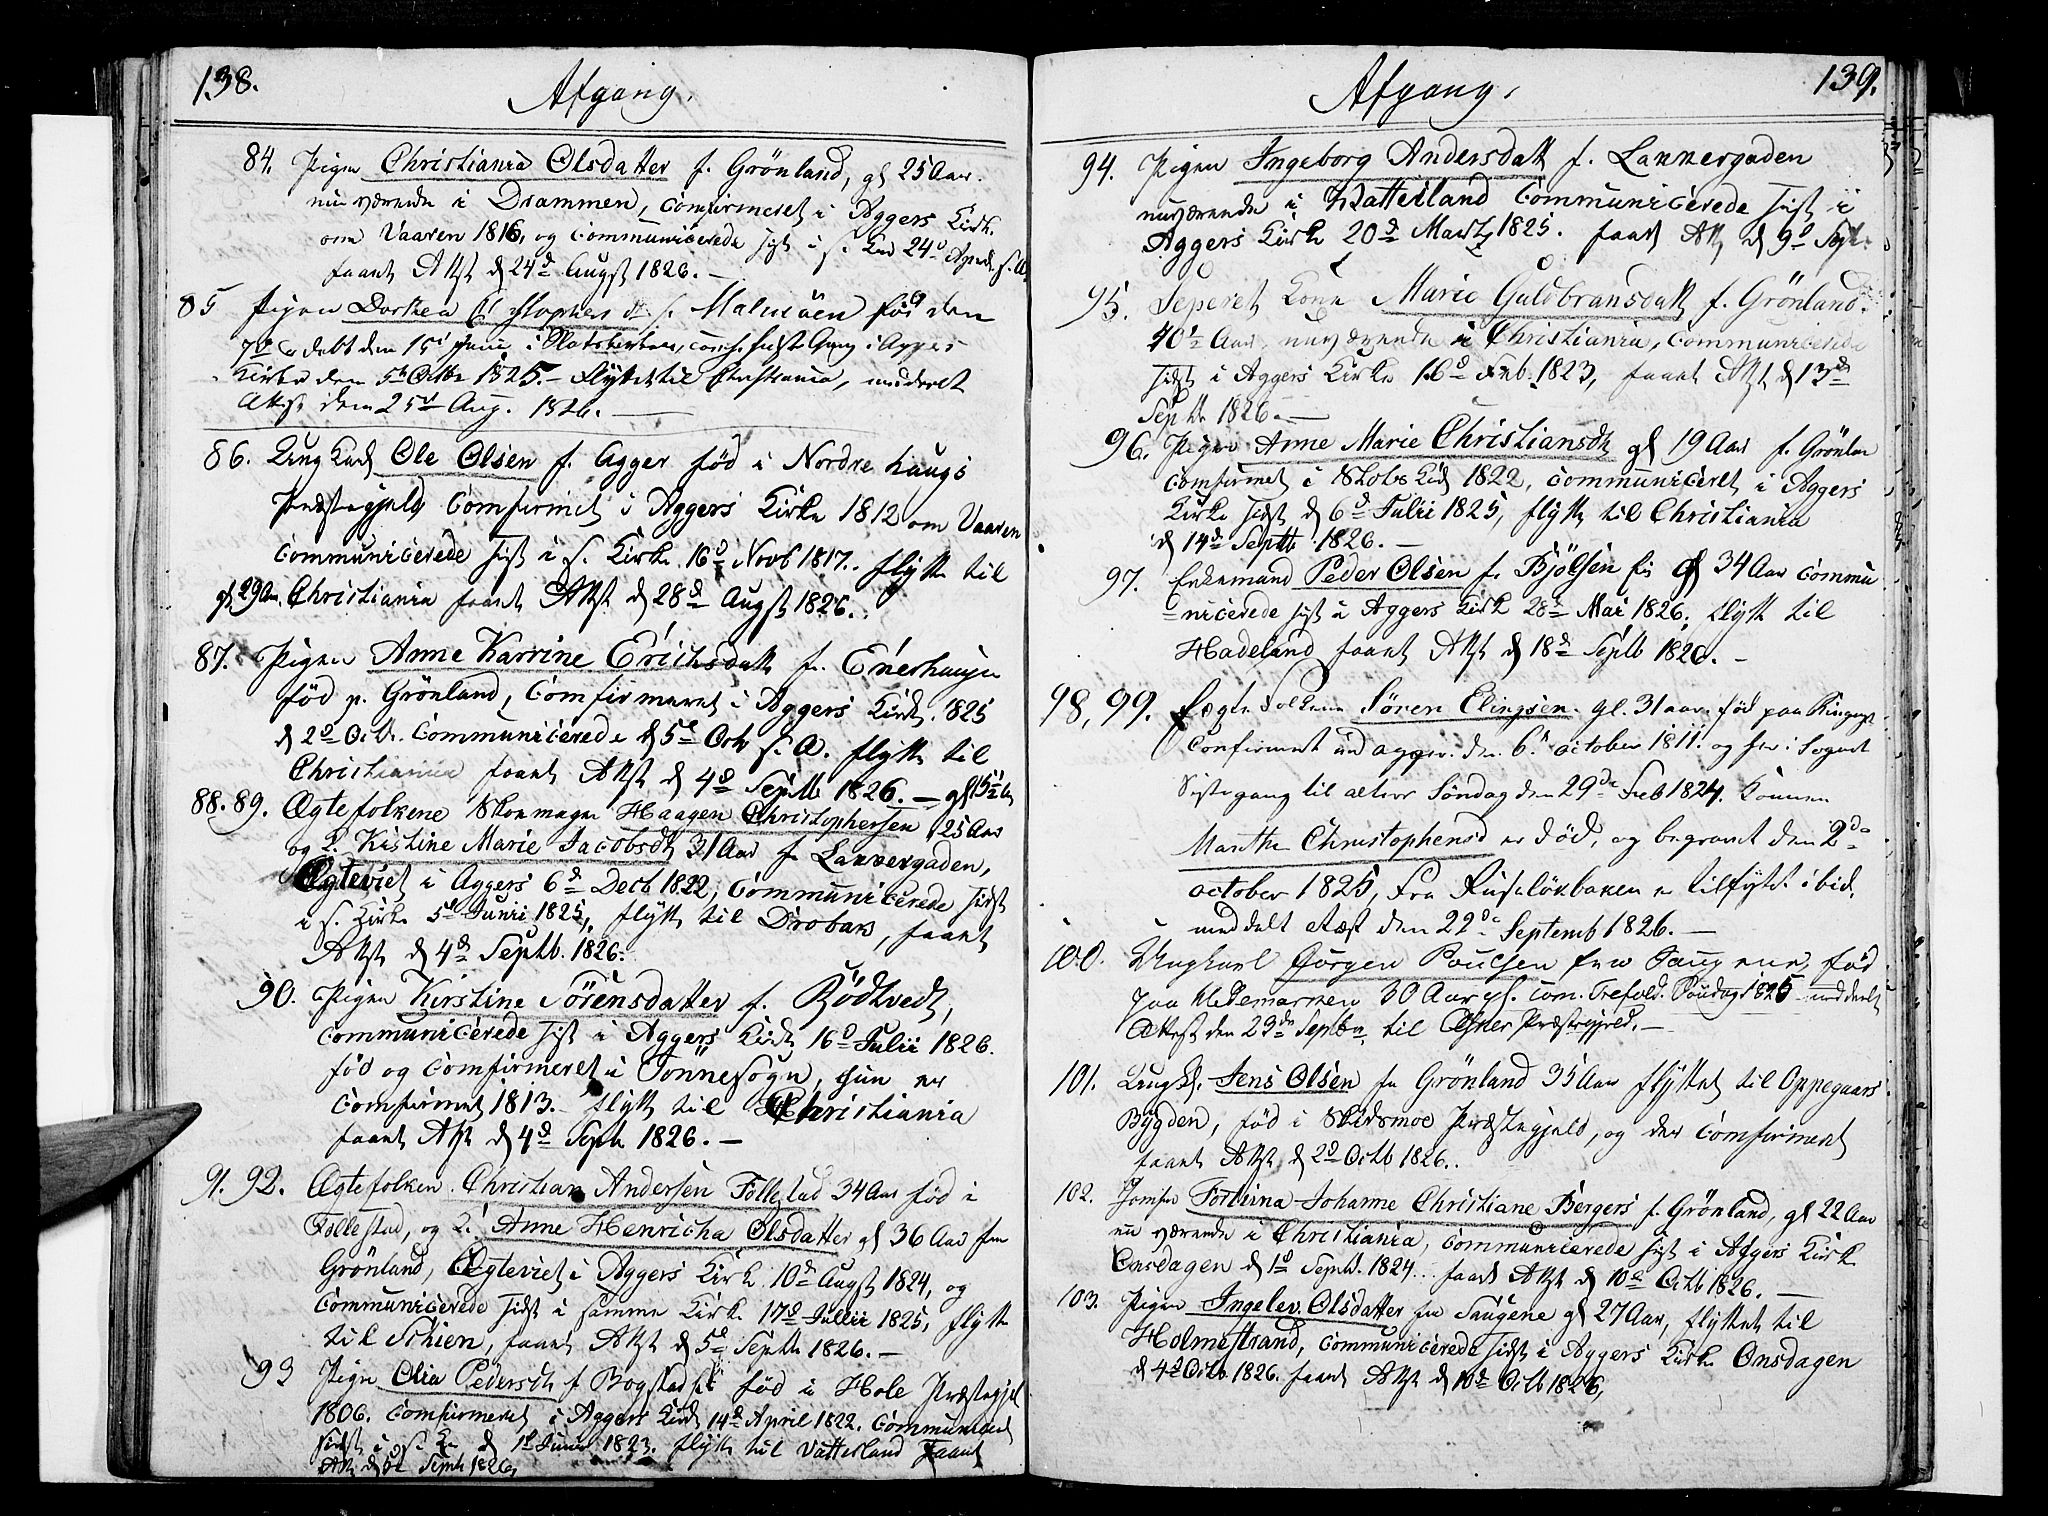 138.
Afgang.
84. Pigen Christiania Olsdatter f. Grönland, gl 25 Aar.
nu værende i Drammen, Comfirmeret i Aggers Kirk.
om Vaaren 1816, og Communicerede sist i s. Kir 24d
faaet Attst d 24d Augst 1826. —
85 Pigen Dorthea f. Malmöen föd den
döbt den 15d Juni i sidste Gang i Aggers
Kirke den 5te Octbr 1825. – Flyttet til Christiania, meddeelt
Attest den 25d Aug. 1826. —
86. Ung Karl Ole Olsen f. Agger föd i Nordrehaugs
Præstegjeld Comfirmet i Aggers Kirke 1812 om Vaaren
Communicerede sist i s. Kirke 16d Novb 1817. flytt til
gl. 29 Aar. Christiania faaet Attst d 28d Augst 1826.
87. Pigen Anne Karrine Erichsdatt fr. Enerhaugen
föd p. Grönland, Comfirmeret i Aggers Kirk. 1825
d 2d Octb. Communicerede d 5d Octb s. A. flytt til
Christiania faaet Attst d 4d Septb 1826. — gl 15½ Aar
88. 89. Ægtefolkene Skomager Haagen Christophersen 25 Aar
og K. Kistine Marie Jacobsdt 31 Aar fr Lakkergaden,
Ægteviet i Aggers 6d Decb 1822, Communicerede sidst
i s. Kirke 5d Junii 1825, flytt til Dröbak, faaet
Attst d 4d Septb. 1826.
90. Pigen Kirstine Sörensdatter f. Rödtvedt,
Communicerede sist i Aggers Kirk 16d Julii 1826.
föd og Comfirmeret i Tönnesogn, hun er
Comfirmet 1813. – flytt til Christiania
faaet Attst d 4d Septb 1826. —
91. 92. Ægtefolken Christian Andersen Follestad 34 Aar föd i
Follestad, og K. Anne Henricha Olsdatter gl 36 Aar fra
Grönland, Ægteviet i Aggers Kirke 10d Augst 1824, og
Communicerede sidst i samme Kirke 17d Julii 1825, flytt
til Schien, faaet Attst d 5d Septb 1826. —
93 Pigen Olia Pedersdt f Bogstad föd i Hole Præstegjel
1806. Comfirmeret i Aggers Kirk 14d April 1822. Communiceret
sidst i s. K. d 1d Junii 1823. flytt til Vatterland faaet
Attst d 5d Septb 1826.
139.
Afgang.
94. Pigen Ingeborg Andersdatt f. Lakkergaden
nuværende i Watterland Communicerede sist i
Aggers Kirke 20d Martz 1825. faaet Att d 9d Sept.
95. Seperet Kone Marie Guldbransdatt f. Grönland.
40½ Aar, nuværende i Christiania, Communicerede
sidst i Aggers Kirke 16d Feb. 1823, faaet Attst d 13d
Septb 1826. —
96. Pigen Anne Marie Christiansdt gl 19 Aar f. Grönlan
Comfirmet i Skolens Kirk 1822, Communiceret i Aggers
Kirke sidst d 6d Julii 1825, flytt til Christiania
d 14d Septb 1826. —
97. Enkemand Peder Olsen fr Bjölsen gl 34 Aar Commu
nicerede sist i Aggers Kirke 28d Mai 1826, flytt til
Hadeland faaet Attst d 18d Septb 1826. —
98, 99. Ægtefolkene Sören Elingsen. gl. 31 aar. föd paa Ringerige
Confirmert ud agger. den 6d october 1811. og her i Sognet
Sistegang til alters Söndag den 29de Feb 1824. Konen
Marthe Christophensd er död, og begravet den 2de
october 1825, Fra Ruselökbaken er tilflytt i bid.
meddelt Atæst den 22de Septemb 1826. —
100. Ungkarl Jörgen Poulsen fra Saugene, föd
paa Hedemarken 30 Aar gl. Com. Trefold. Söndag 1826 meddeelt
Attest den 23de Septbr til Præstegjeld. —
101. Ungk. Jens Olsen fra Grönland 35 Aar flyttet til Oppegaars
Bygden, föd i Skidsmoe Præstegjeld, og der Comfirmeret
faaet Attst d 2d Octb 1826.
102. Jomfr Johanne Christiane Bergers f. Grönland, gl 22 Aar
nu værende i Christiania, Communicerede sist i Aggers Kirk
Onsdagen d 1d Septb. 1824. faaet Attst d 10d Octb 1826. —
103. Pigen Ingelev. Olsdatter fra Saugene gl 27 Aar, flyttet til
Holmestrand, Communicerede sidst i Aggers Kirke Onsdagen
d 4d Octb 1826. faaet Attst d 10d Octb 1826,